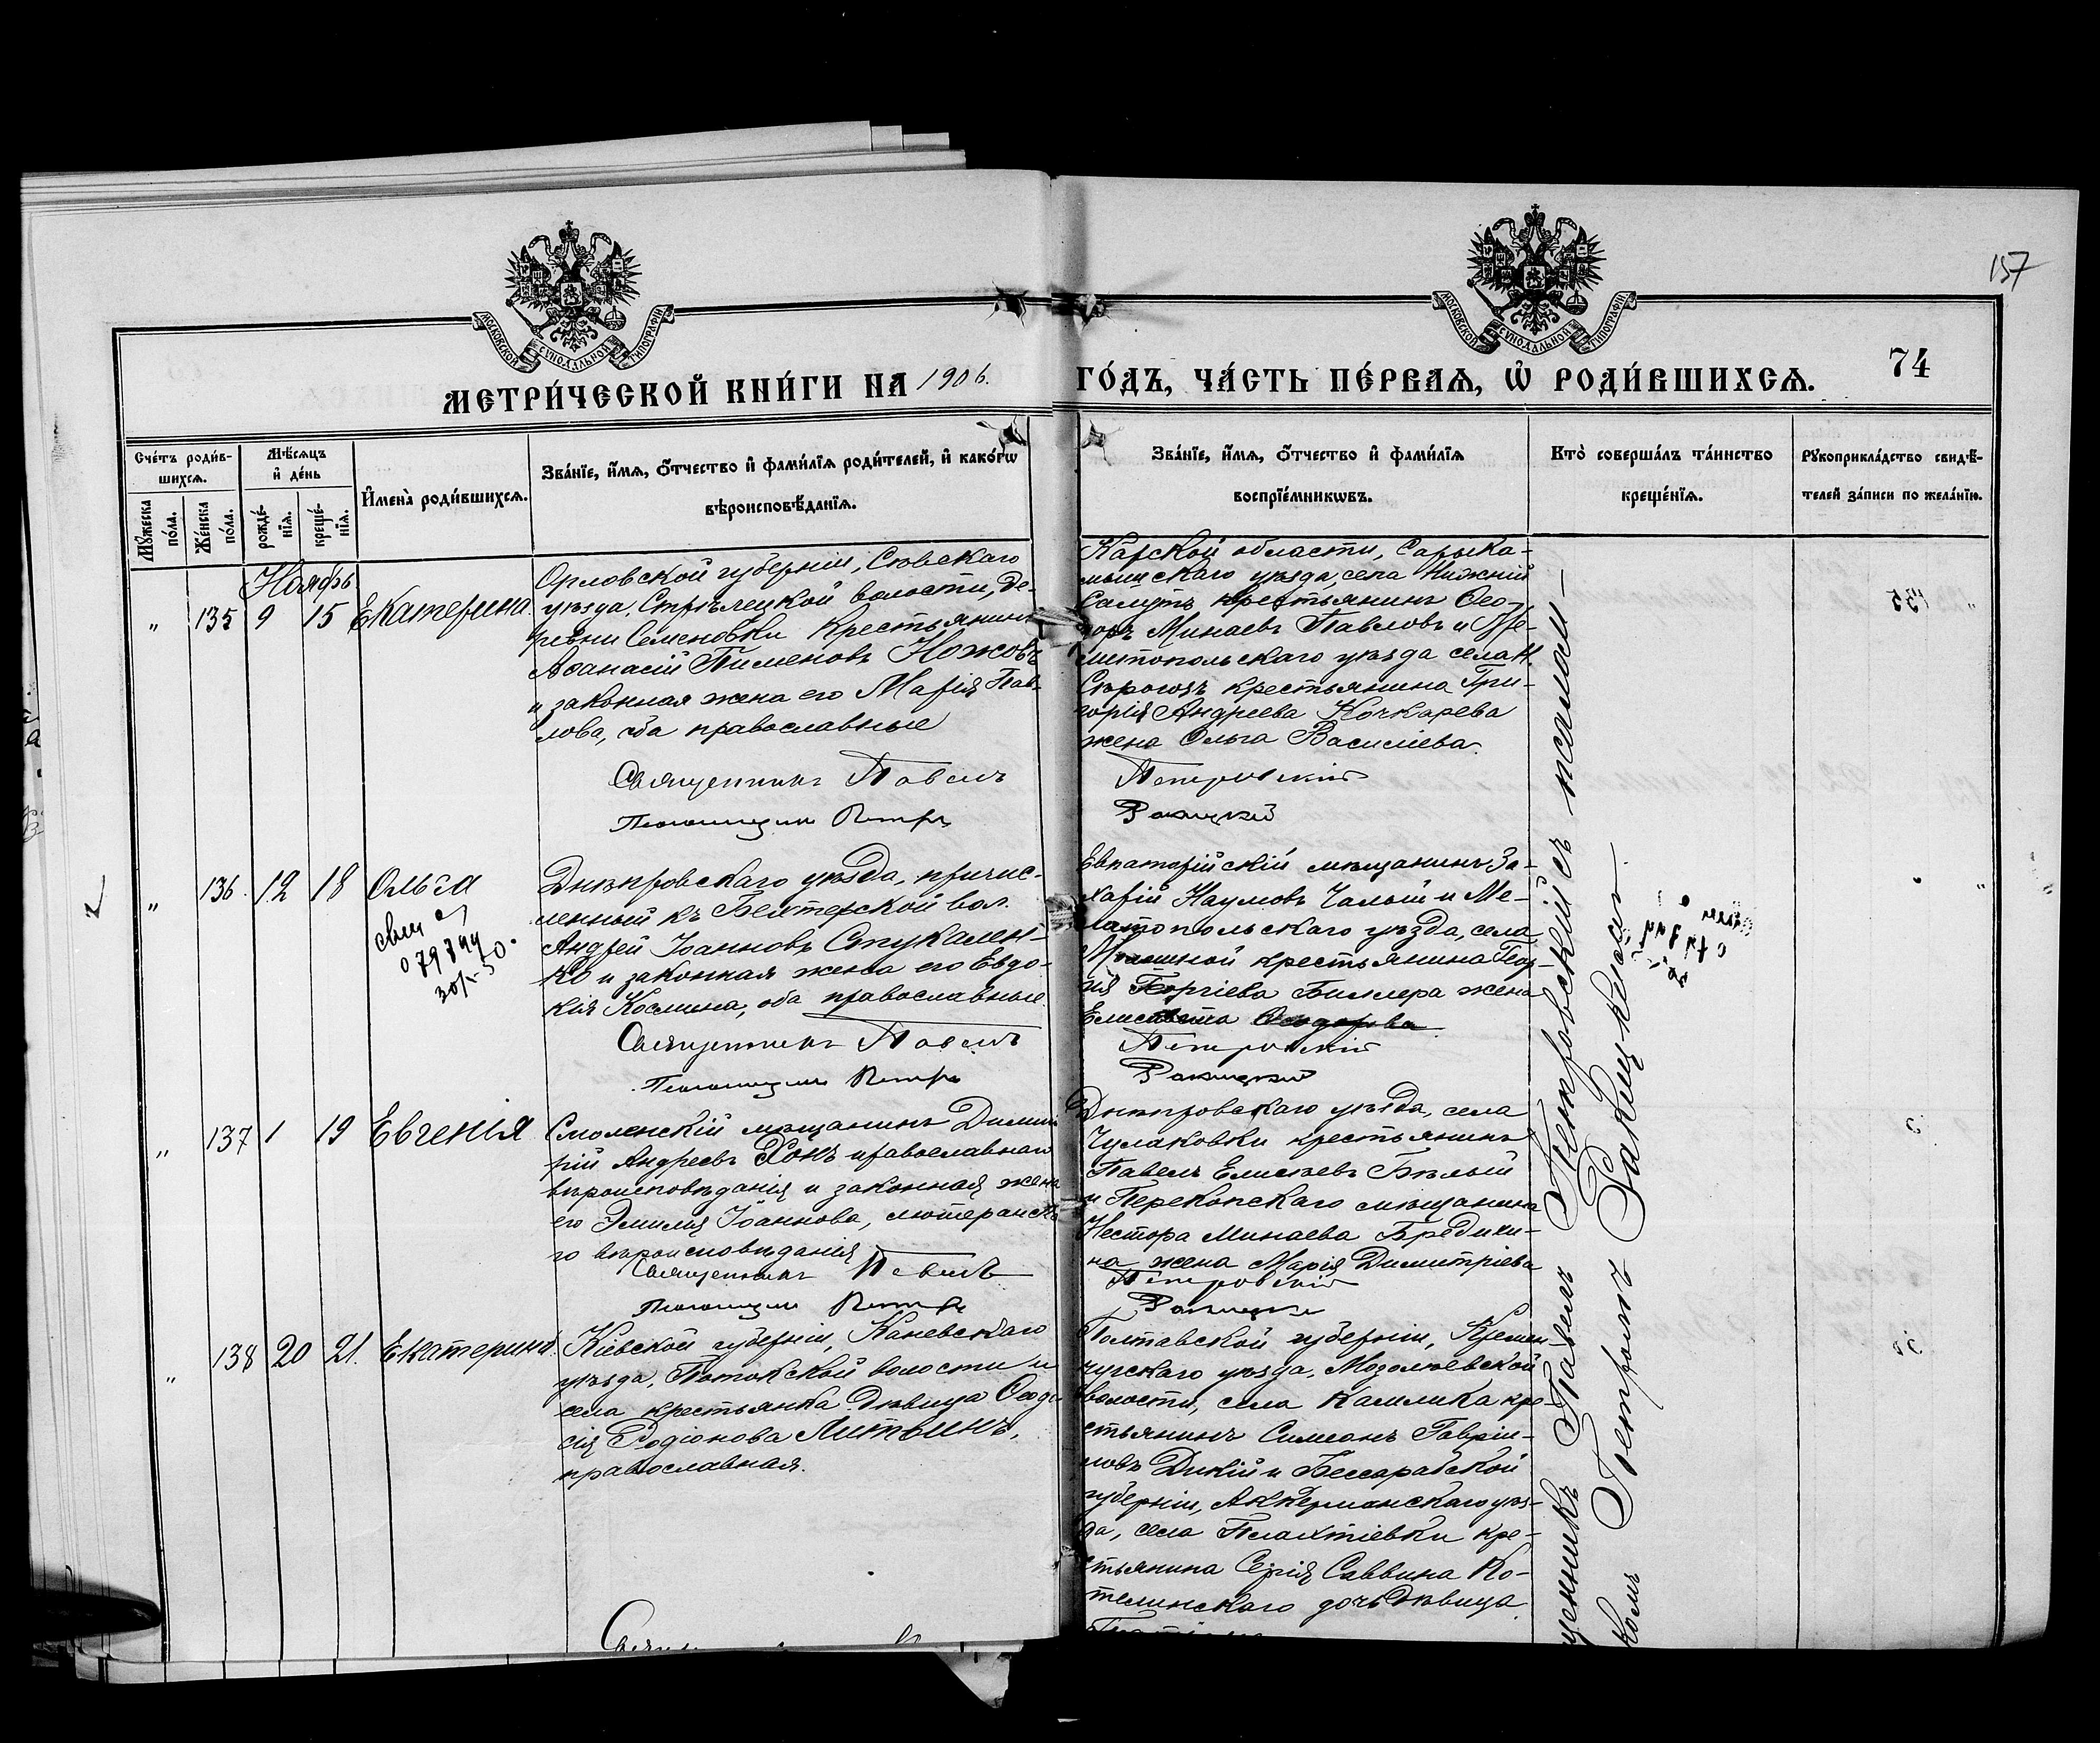 157
МОСКОВСКОЙ СѴНОДАЛЬНОЙ ТИПОГРАФІИ
МОСКОВСКОЙ СѴНОДАЛЬНОЙ ТИПОГРАФІИ
МЕТРИ́ЧЕСКОЙ КНИ́ГИ НА 1906. ГО́ДЪ, ЧА́СТЬ ПЕ́РВАѦ, Ѡ҆ РОДИ́ВШИХСѦ. 74
Сче́тъ роди́в-
шихсѧ.
Мѣ́сѧцъ
и҆ де́нь
И҆мена̀ роди́вшихсѧ.
Зва́нїе, и҆́мѧ, ѻ҆́тчество и҆ фами́лїѧ роди́телей, и҆ како́гѡ
вѣроисповѣ́данїѧ.
Мꙋ́жеска
по́ла.
Же́нска
по́ла.
рожде́-
нїѧ.
креще́-
нїѧ.
Зва́нїе, и҆́мѧ, ѻ҆́тчество и҆ фами́лїѧ
воспрїе́мникѡвъ.
Кто̀ соверша́лъ та́инство
креще́нїѧ.
Рꙋкоприкла́дство свидѣ́-
телей за́писи по жела́нїю.
Ноябрь
" 135 9 15 Екатерина.
Орловской губерніи, Сѣвскаго
уѣзда, Стрѣлецкой волости, де-
ревни Семеновки крестьянинъ
Аѳанасій Пименовъ Ножовъ
и законная жена его Марія Пав-
лова, оба православные
Священникъ Павелъ
Псаломщикъ Петръ
Карской области, Сарыка-
мышскаго уѣзда, села Нижній
Салутъ крестьянинъ Ѳео-
доръ Минаевъ Павловъ и Ме-
литопольскаго уѣзда села Н.
Сѣрогозъ крестьянина Гри-
горія Андреева Кочкарева
жена Ольга Василіева.
Петровскій
Ракицкій
" 136. 12 18 Ольга
079744
Днѣпровскаго уѣзда, причис-
ленный къ Бехтерской вол.
Андрей Іоанновъ Стукален-
ко и законная жена его Евдо-
кія Космина, оба православные
Священникъ Павелъ
Псаломщикъ Петръ
Евпаторійскій мѣщанинъ За-
харій Наумовъ Чалый и Ме-
литопольскаго уѣзда, села
крестьянина Геор-
гія Георгіева Биллера жена
Елисавета Ѳеодорова
Петровскій
Ракицкій
" 137 1 19 Евгенія
Смоленскій мѣщанинъ Дими-
трій Андреевъ православнаго
вѣроисповѣданія и законная жена
его Эмилія Іоаннова, лютеранска-
го вѣроисповѣданія
Священникъ Павелъ
Псаломщикъ Петръ
Днѣпровскаго уѣзда, села
Чулаковки крестьянинъ
Павелъ Елисеевъ Бѣлый
и Перекопскаго мѣщанина
Нестора Минаева Бредихи-
на жена Марія Димитріева
Петровскій
Ракицкій
" 138 20 21. Екатерина.
Кіевской губерніи, Каневскаго
уѣзда, Потокской волости и
села крестьянка дѣвица Ѳеодо-
сія Родіонова Литвинъ,
православная.
Полтавской губерніи, Кремен-
чугскаго уѣзда, Мозолѣевской
волости, села крe-
стьянинъ Симеонъ Гаврiи-
ловъ Дикій и Бессарабской
губерніи, Аккерманскаго уѣз-
да, села Плахтіевки кре-
стьянина Сергія Саввина Ко-
телинскаго дочь дѣвица
Священникъ Павелъ Петровскій съ псалом-
щикомъ Петромъ Ракицкимъ.